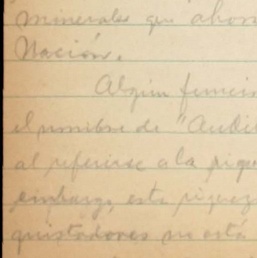 minerales que ahora
Nación.
Algún funcio
el nombre de "Audi
al referirse a la rique
embargo, esta riquez
quistadores no está